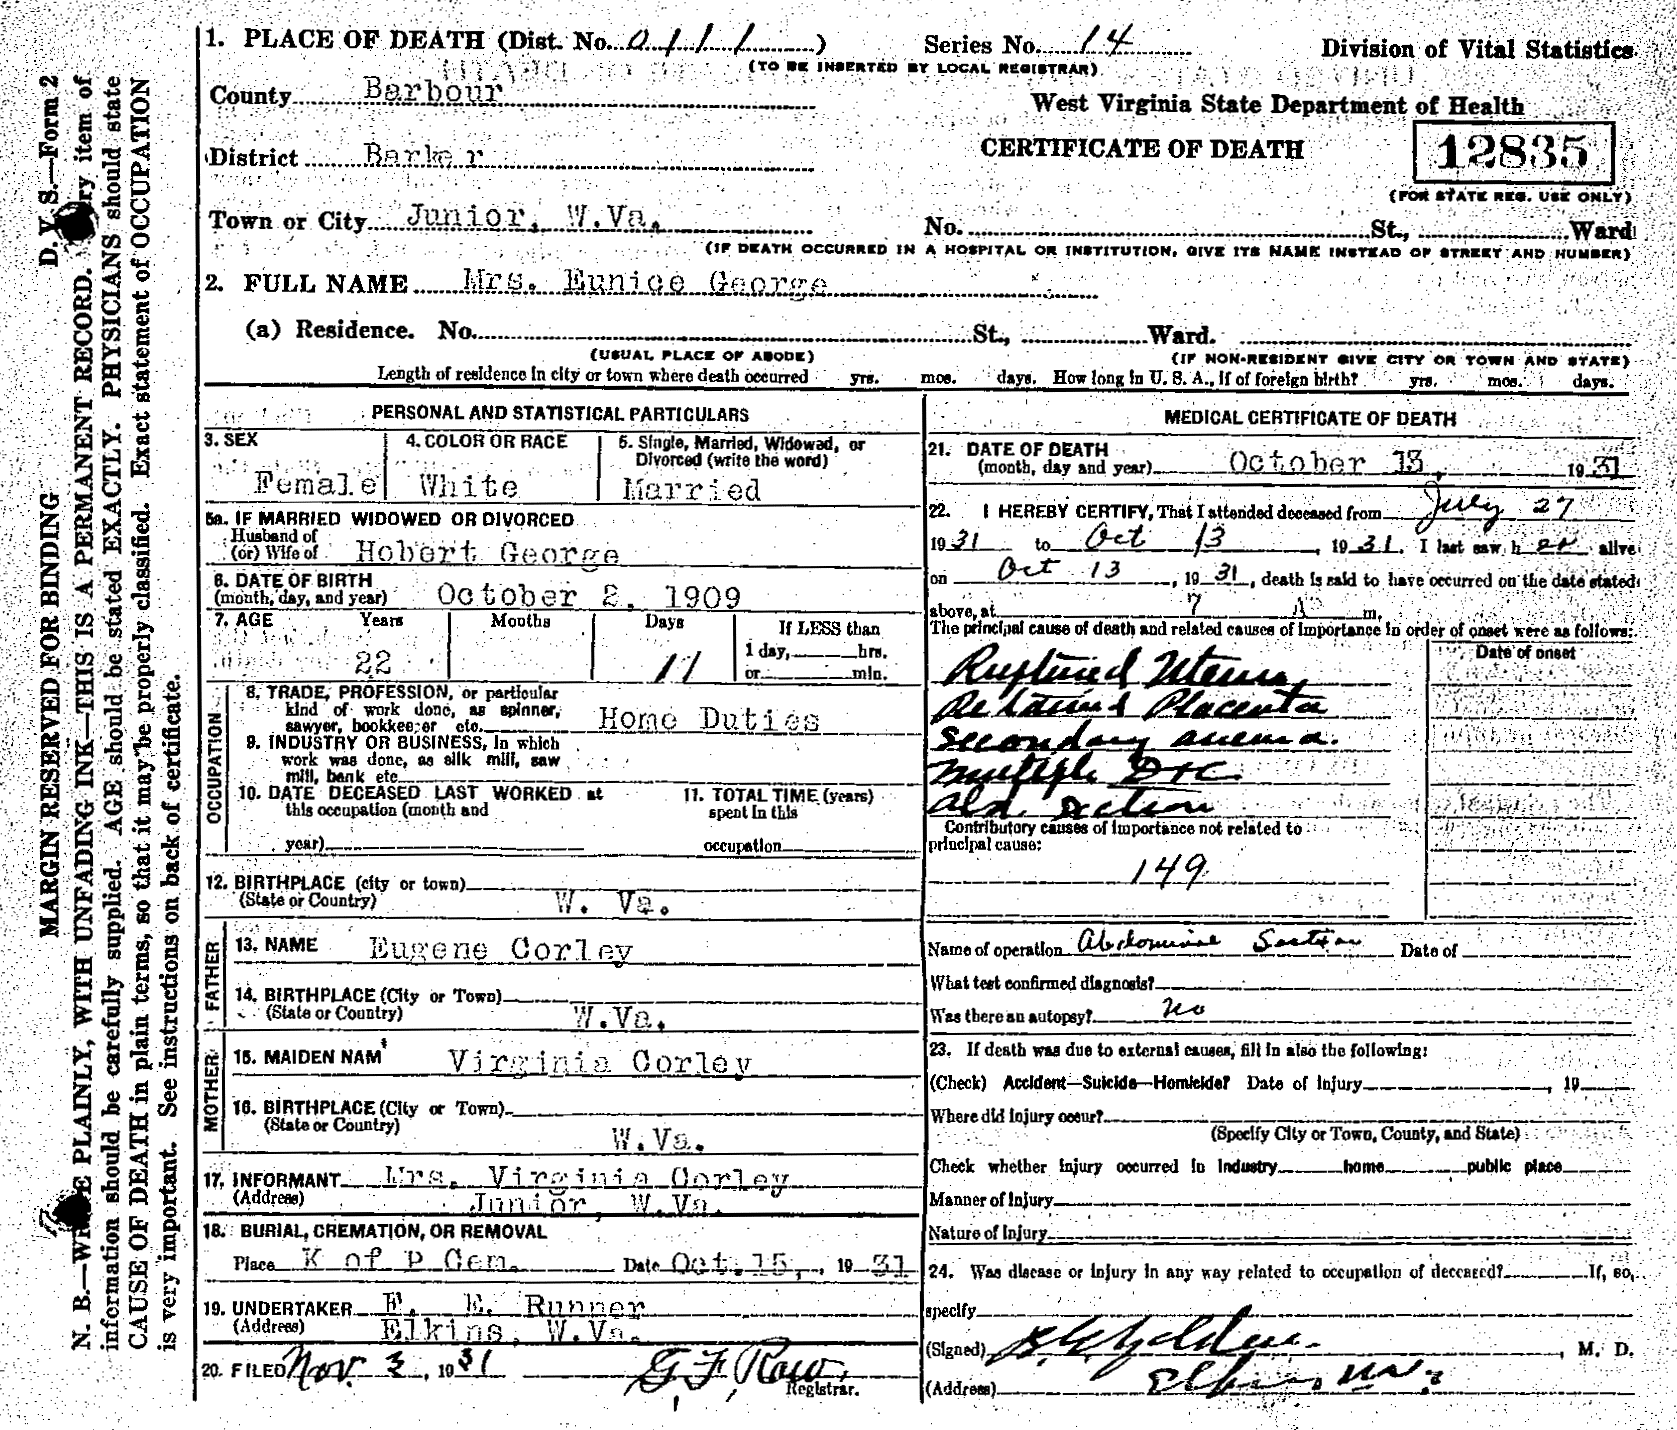 MARGIN RESERVED FOR BINDING D. V. S.—Form 2
N. B.—WRITE PLAINLY, WITH UNFADING INK—THIS IS A PERMANENT RECORD. Every item of
information should be carefully supplied. AGE should be stated EXACTLY. PHYSICIANS should state
CAUSE OF DEATH in plain terms, so that it may be properly classified. Exact statement of OCCUPATION
is very important. See instructions on back of certificate.
1. PLACE OF DEATH (Dist. No. 0111) Series No. 14 Division of Vital Statistics
(TO BE INSERTED BY LOCAL REGISTRAR)
County Barbour West Virginia State Department of Health
District Barker CERTIFICATE OF DEATH 12835
(FOR STATE REG. USE ONLY)
Town or City Junior, W.Va. No. St., Ward
(IF DEATH OCCURRED IN A HOSPITAL OR INSTITUTION, GIVE ITS NAME INSTEAD OF STREET AND NUMBER)
2. FULL NAME Mrs. Eunice George
(a) Residence. No. St., Ward.
(USUAL PLACE OF ABODE) (IF NON-RESIDENT GIVE CITY OR TOWN AND STATE)
Length of residence in city or town where death occurred yrs. mos. days. How long in U. S. A., if of foreign birth? yrs. mos. days.
PERSONAL AND STATISTICAL PARTICULARS
3. SEX 4. COLOR OR RACE 5. Single, Married, Widowed, or
Divorced (write the word)
Female White Married
5a. IF MARRIED WIDOWED OR DIVORCED
Husband of
(or) Wife of Hobert George
6. DATE OF BIRTH
(month, day, and year) October 2, 1909
7. AGE Years Months Days If LESS than
1 day, hrs.
22 11 or min.
OCCUPATION
8. TRADE, PROFESSION, or particular
kind of work done, as spinner,
sawyer, bookkeeper etc. Home Duties
9. INDUSTRY OR BUSINESS, in which
work was done, as silk mill, saw
mill, bank etc
10. DATE DECEASED LAST WORKED at 11. TOTAL TIME (years)
this occupation (month and spent in this
year) occupation
12. BIRTHPLACE (city or town)
(State or Country) W. Va.
FATHER
13. NAME Eugene Corley
14. BIRTHPLACE (City or Town)
(State or Country) W.Va.
MOTHER
15. MAIDEN NAM Virginia Corley
16. BIRTHPLACE (City or Town)
(State or Country) W.Va.
17. INFORMANT Mrs. Virginia Corley
(Address) Junior, W.Va.
18. BURIAL, CREMATION, OR REMOVAL
Place K of P Cem. Date Oct. 15, 19 31
19. UNDERTAKER F. E. Runner
(Address) Elkins, W.Va.
20. FILED Nov. 3, 19 31 G. F. Row
Registrar.
MEDICAL CERTIFICATE OF DEATH
21. DATE OF DEATH
(month, day and year) October 13, 19 31
22. I HEREBY CERTIFY, That I attended deceased from July 27
19 31 to Oct 13, 19 31. I last saw h er alive
on Oct 13, 19 31, death is said to have occurred on the date stated
above, at 7 m.
The principal cause of death and related causes of importance in order of onset were as follows:
Date of onset
Ruptured Uterus
Retained Placenta
Secondary anemia.
multiple D+C
abd. section
Contributory causes of importance not related to
principal cause:
149
Name of operation Abdominal Section Date of
What test confirmed diagnosis?
Was there an autopsy? no
23. If death was due to external causes, fill in also the following:
(Check) Accident—Suicide—Homicide? Date of Injury , 19
Where did injury occur?
(Specify City or Town, County, and State)
Check whether injury occurred in Industry home public place
Manner of Injury
Nature of Injury
24. Was disease or injury in any way related to occupation of deceased? If, so,
specify
(Signed) , M. D.
(Address) Elkins, W.Va.